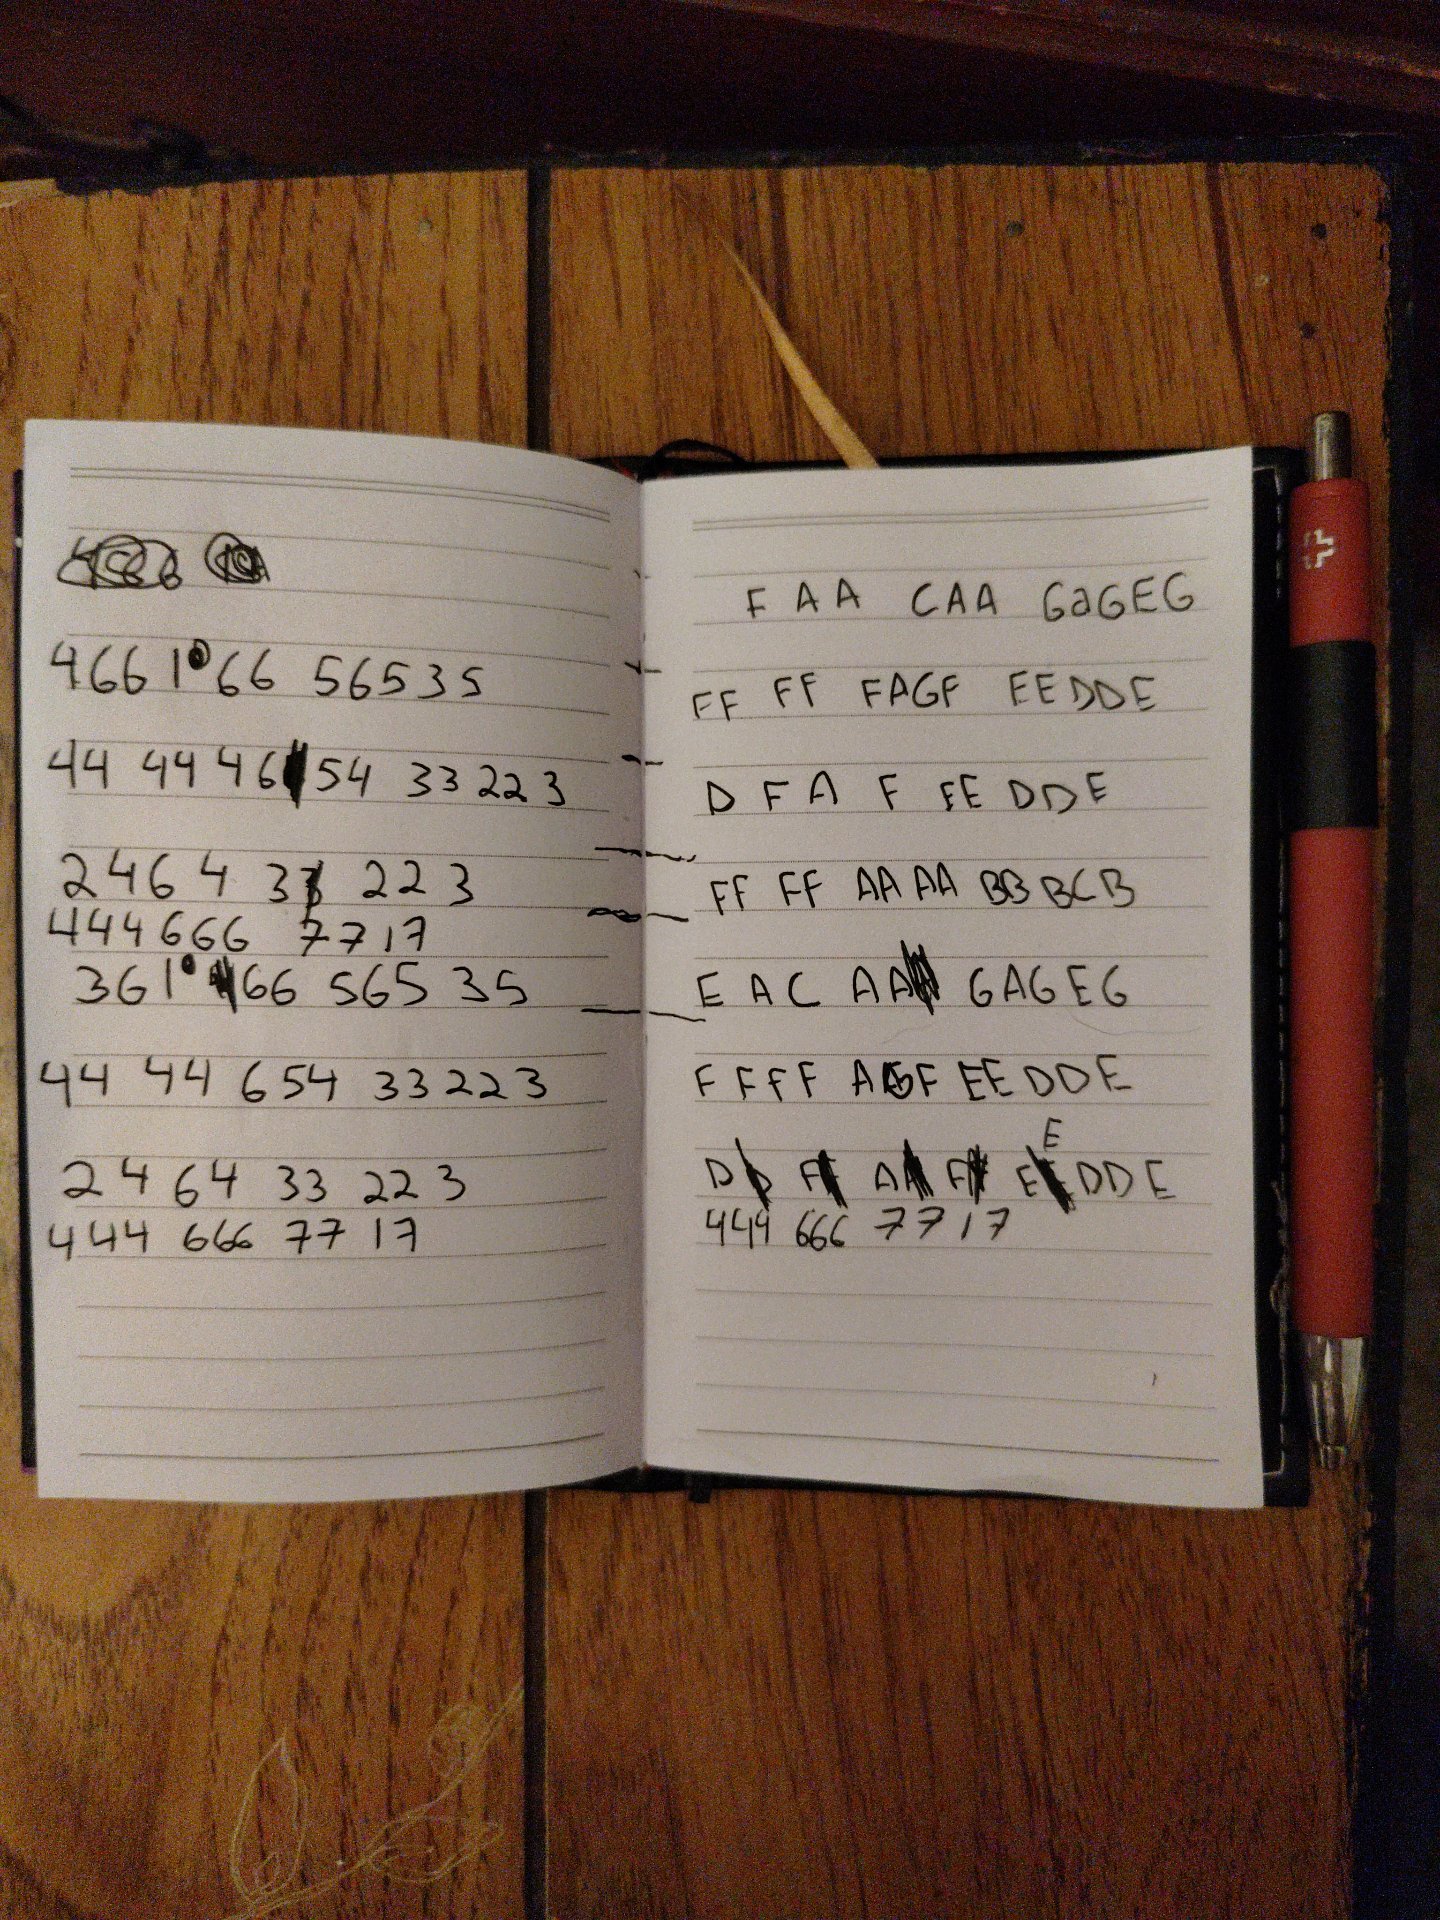 466 1° 66 56535
44 44 46 54 33 22 3
246 4 33 22 3
444 666 7717
361° 66 565 35
44 44 654 33223
24 64 33 223
444 666 77 17
F A A CAA GaGEG
FF FF FAGF EEDDE
D F A F EE DDE
FF FF AA AA BB BCB
E A C AA GAGEG
F F F F AGF EE DDE
E
D F A F E DDE
444 666 77 17